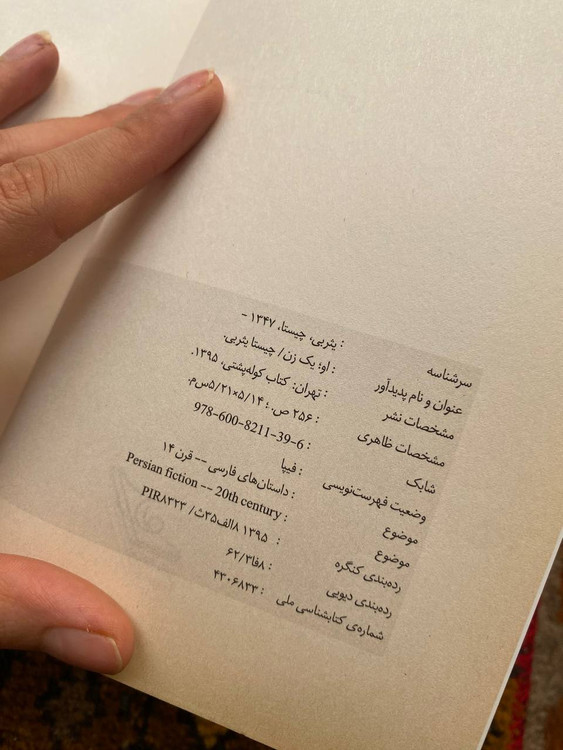 سرشناسه : یثربی، چیستا، ۱۳۴۷ -
عنوان و نام پدیدآور : او؛ یک زن/ چیستا یثربی.
مشخصات نشر : تهران: کتاب کوله‌پشتی، ۱۳۹۵.
مشخصات ظاهری : ۲۵۶ ص.؛ ۱۴/۵×۲۱/۵س‌م.
شابک : 978-600-8211-39-6
وضعیت فهرست‌نویسی : فیپا
موضوع : داستان‌های فارسی -- قرن ۱۴
موضوع : Persian fiction -- 20th century
رده‌بندی کنگره : ۱۳۹۵ ۸الف۳۵ث/ PIR۸۳۲۳
رده‌بندی دیویی : ۸فا۳/۶۲
شماره‌ی کتابشناسی ملی : ۴۳۰۶۸۳۳